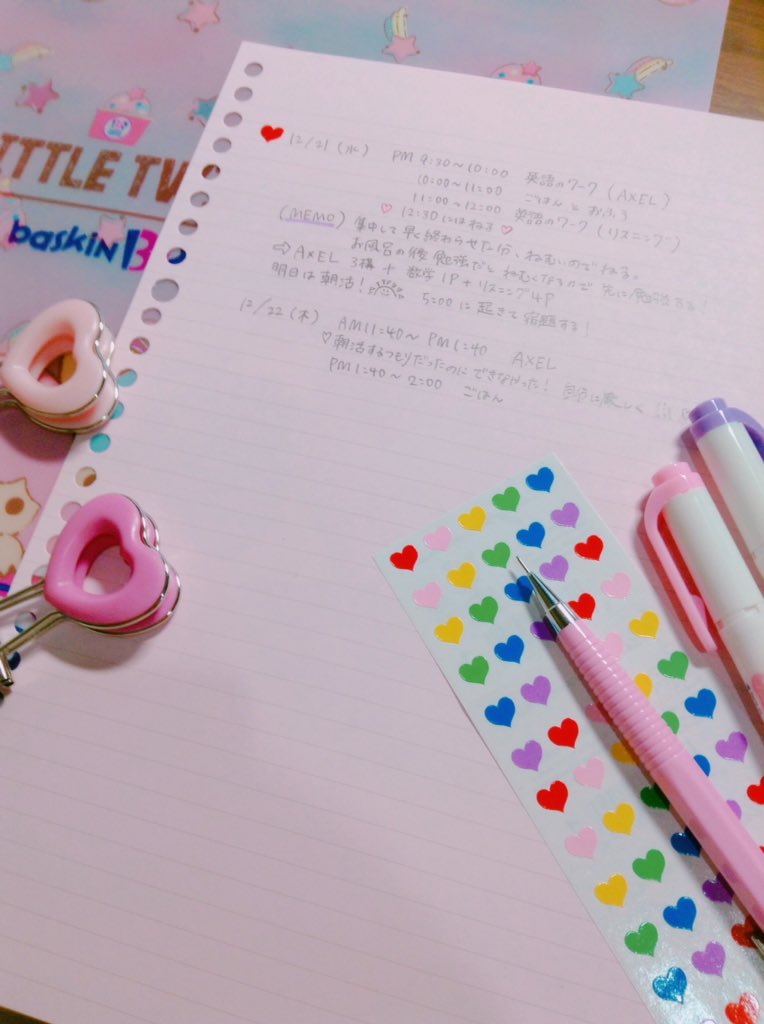 LITTLE TW
baskin 3
12/21 (水) PM 9:30~10:00 英語のワーク (AXEL)
10:00~11:00 ごはんとおふろ
11:00~12:00 英語のワーク (リスニング)
♡ 12:30にはねる ♡
(MEMO) 集中して早く終わらせた分、ねむいのでねる。
お風呂の後勉強だとねむくなるので先に勉強する!
⇨ AXEL 3構 + 数学1P + リスニング4P
明日は朝活! 5:00に起きて宿題する!
12/22 (木) AM11:40~PM1:40 AXEL
♡朝活するつもりだったのにできなかった! に厳しく
PM1:40~2:00 ごはん